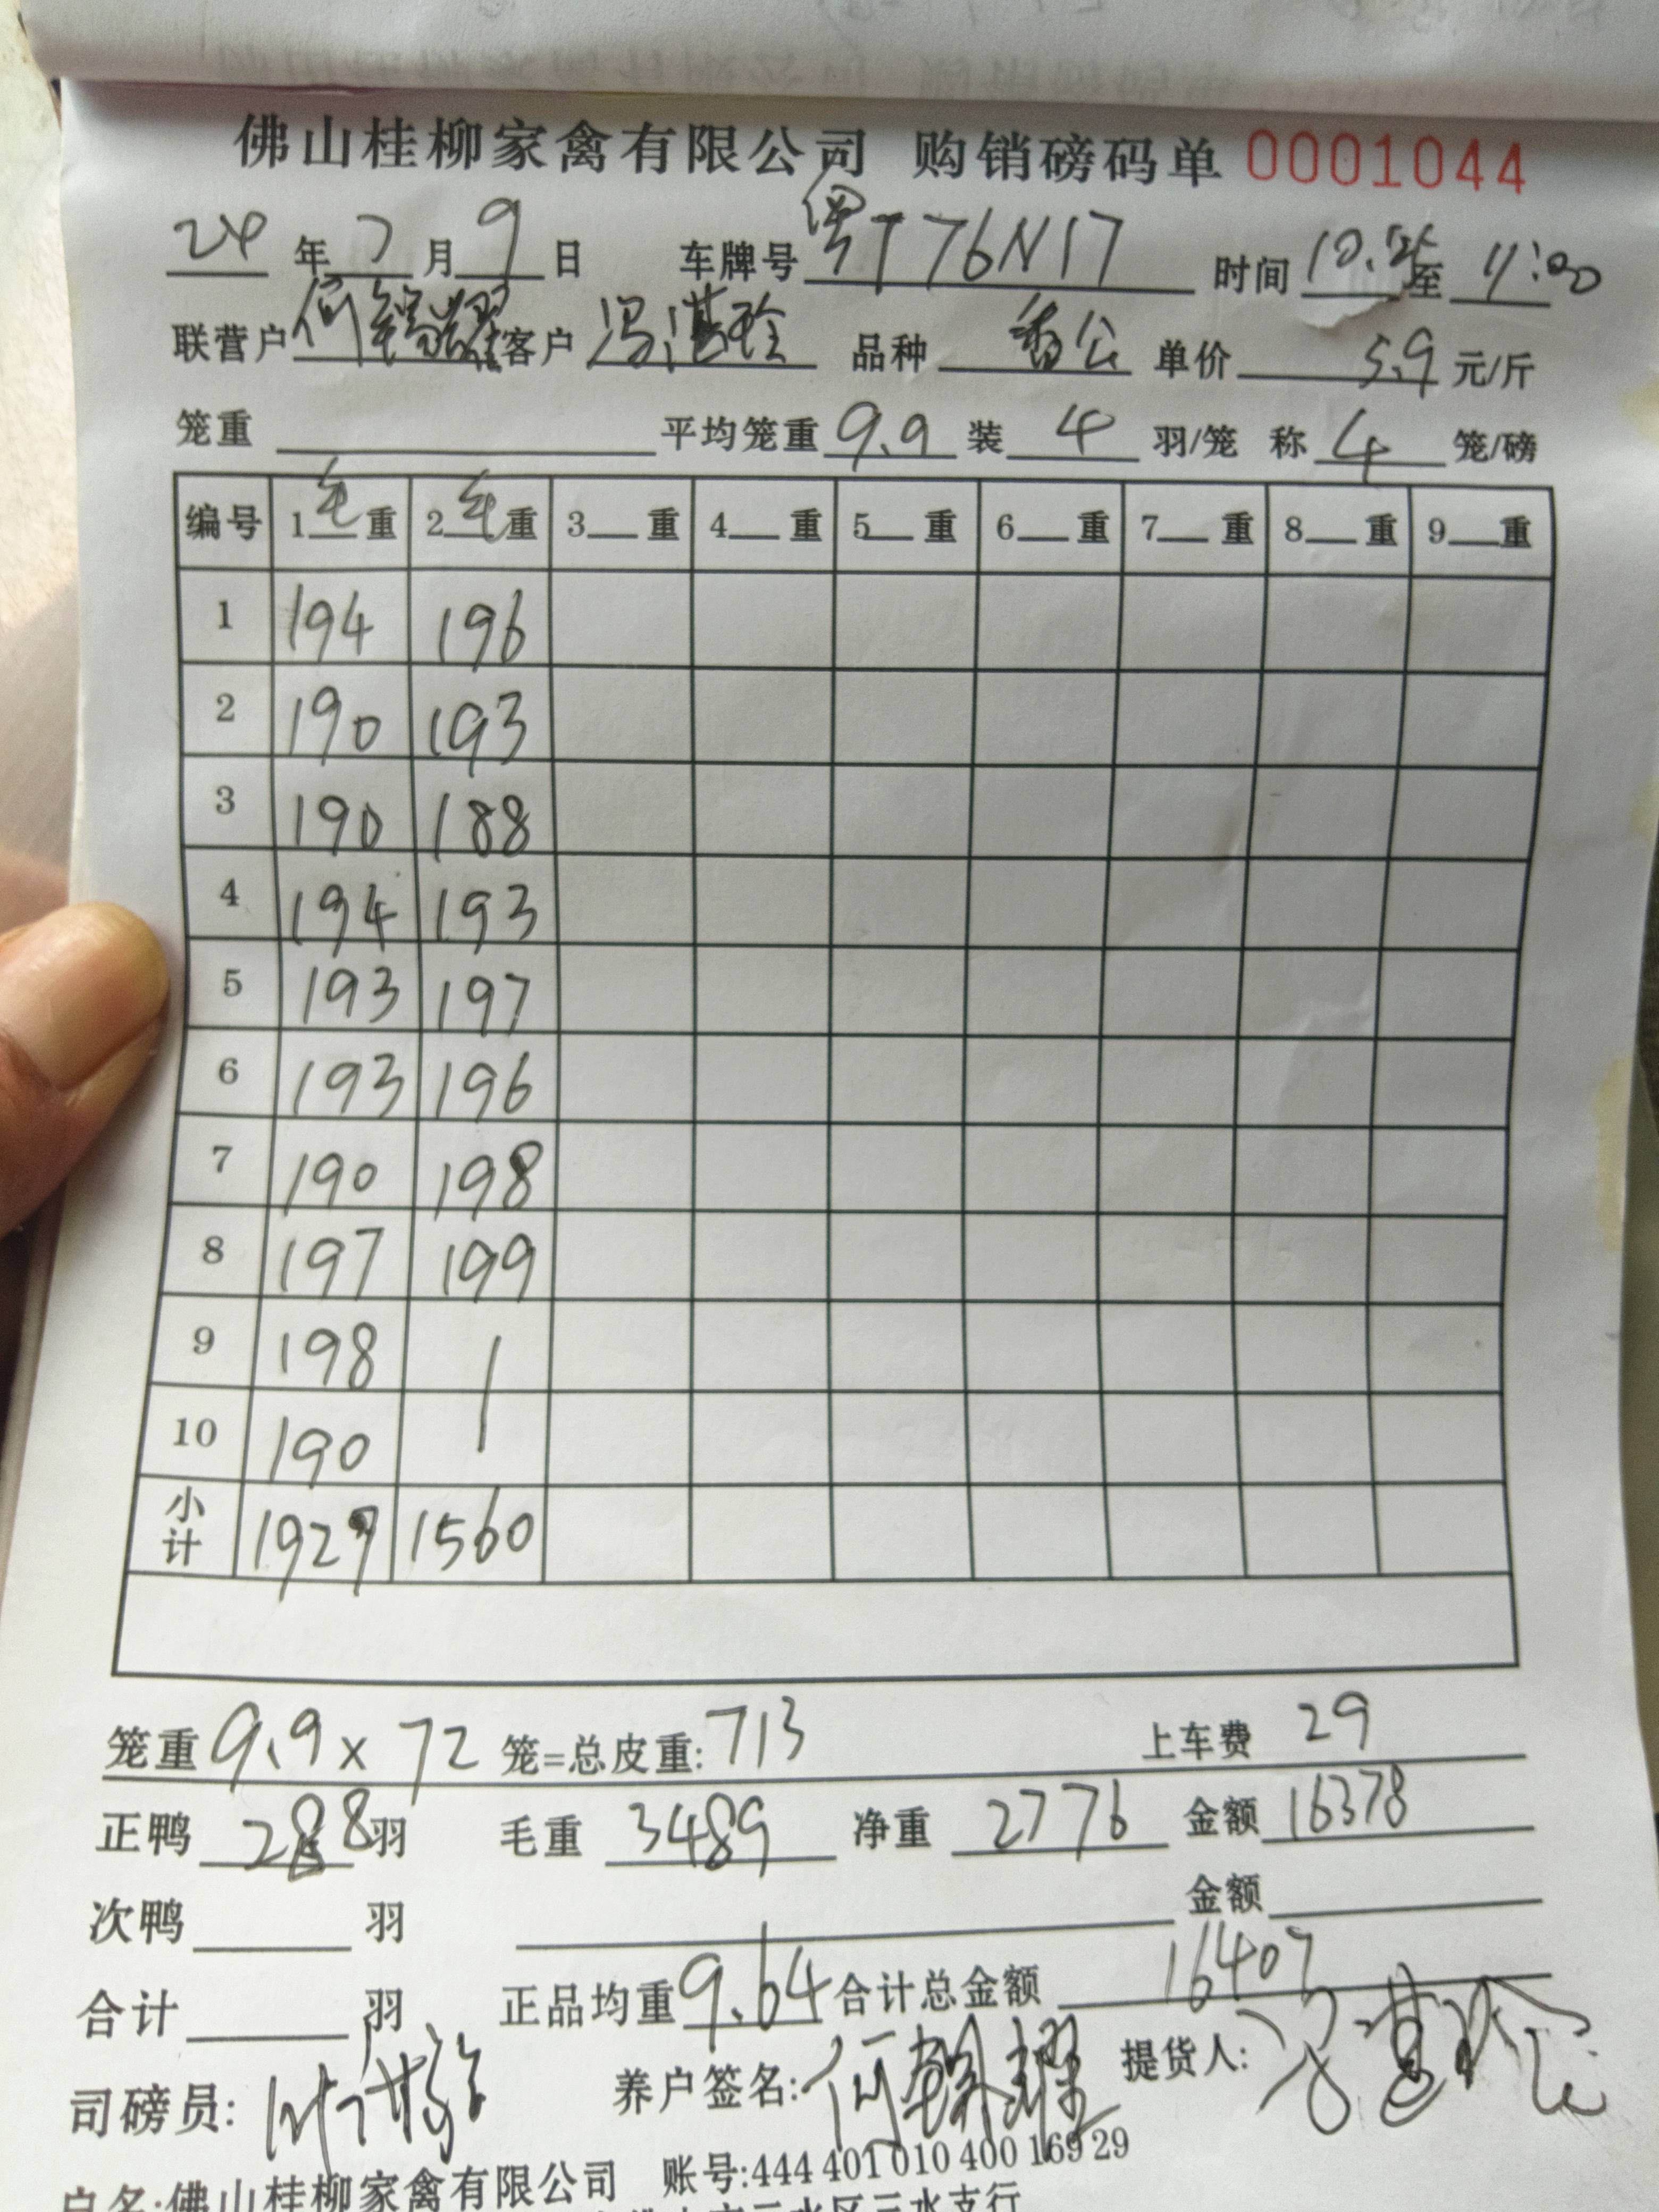 佛山桂柳家禽有限公司 购销磅码单 0001044
24年7月9日 车牌号 粤T76N17 时间 10.25至 11:00
联营户 何锦耀 客户 冯湛玲 品种 番公 单价 5.9 元/斤
笼重 平均笼重 9.9 装 4 羽/笼 称 4 笼/磅
编号 1毛重 2毛重 3重 4重 5重 6重 7重 8重 9重
1 194 196
2 190 193
3 190 188
4 194 193
5 193 197
6 193 196
7 190 198
8 197 199
9 198
10 190
小计 1929 1560
笼重 9.9 x 72 笼=总皮重: 713 上车费 29
正鸭 288羽 毛重 3489 净重 2776 金额 16378
次鸭 羽 金额
合计 羽 正品均重 9.64 合计总金额 16407
司磅员: 养户签名: 何锦耀 提货人: 冯湛玲
户名:佛山桂柳家禽有限公司 账号:444 401 010 400 169 29
三水区三水支行